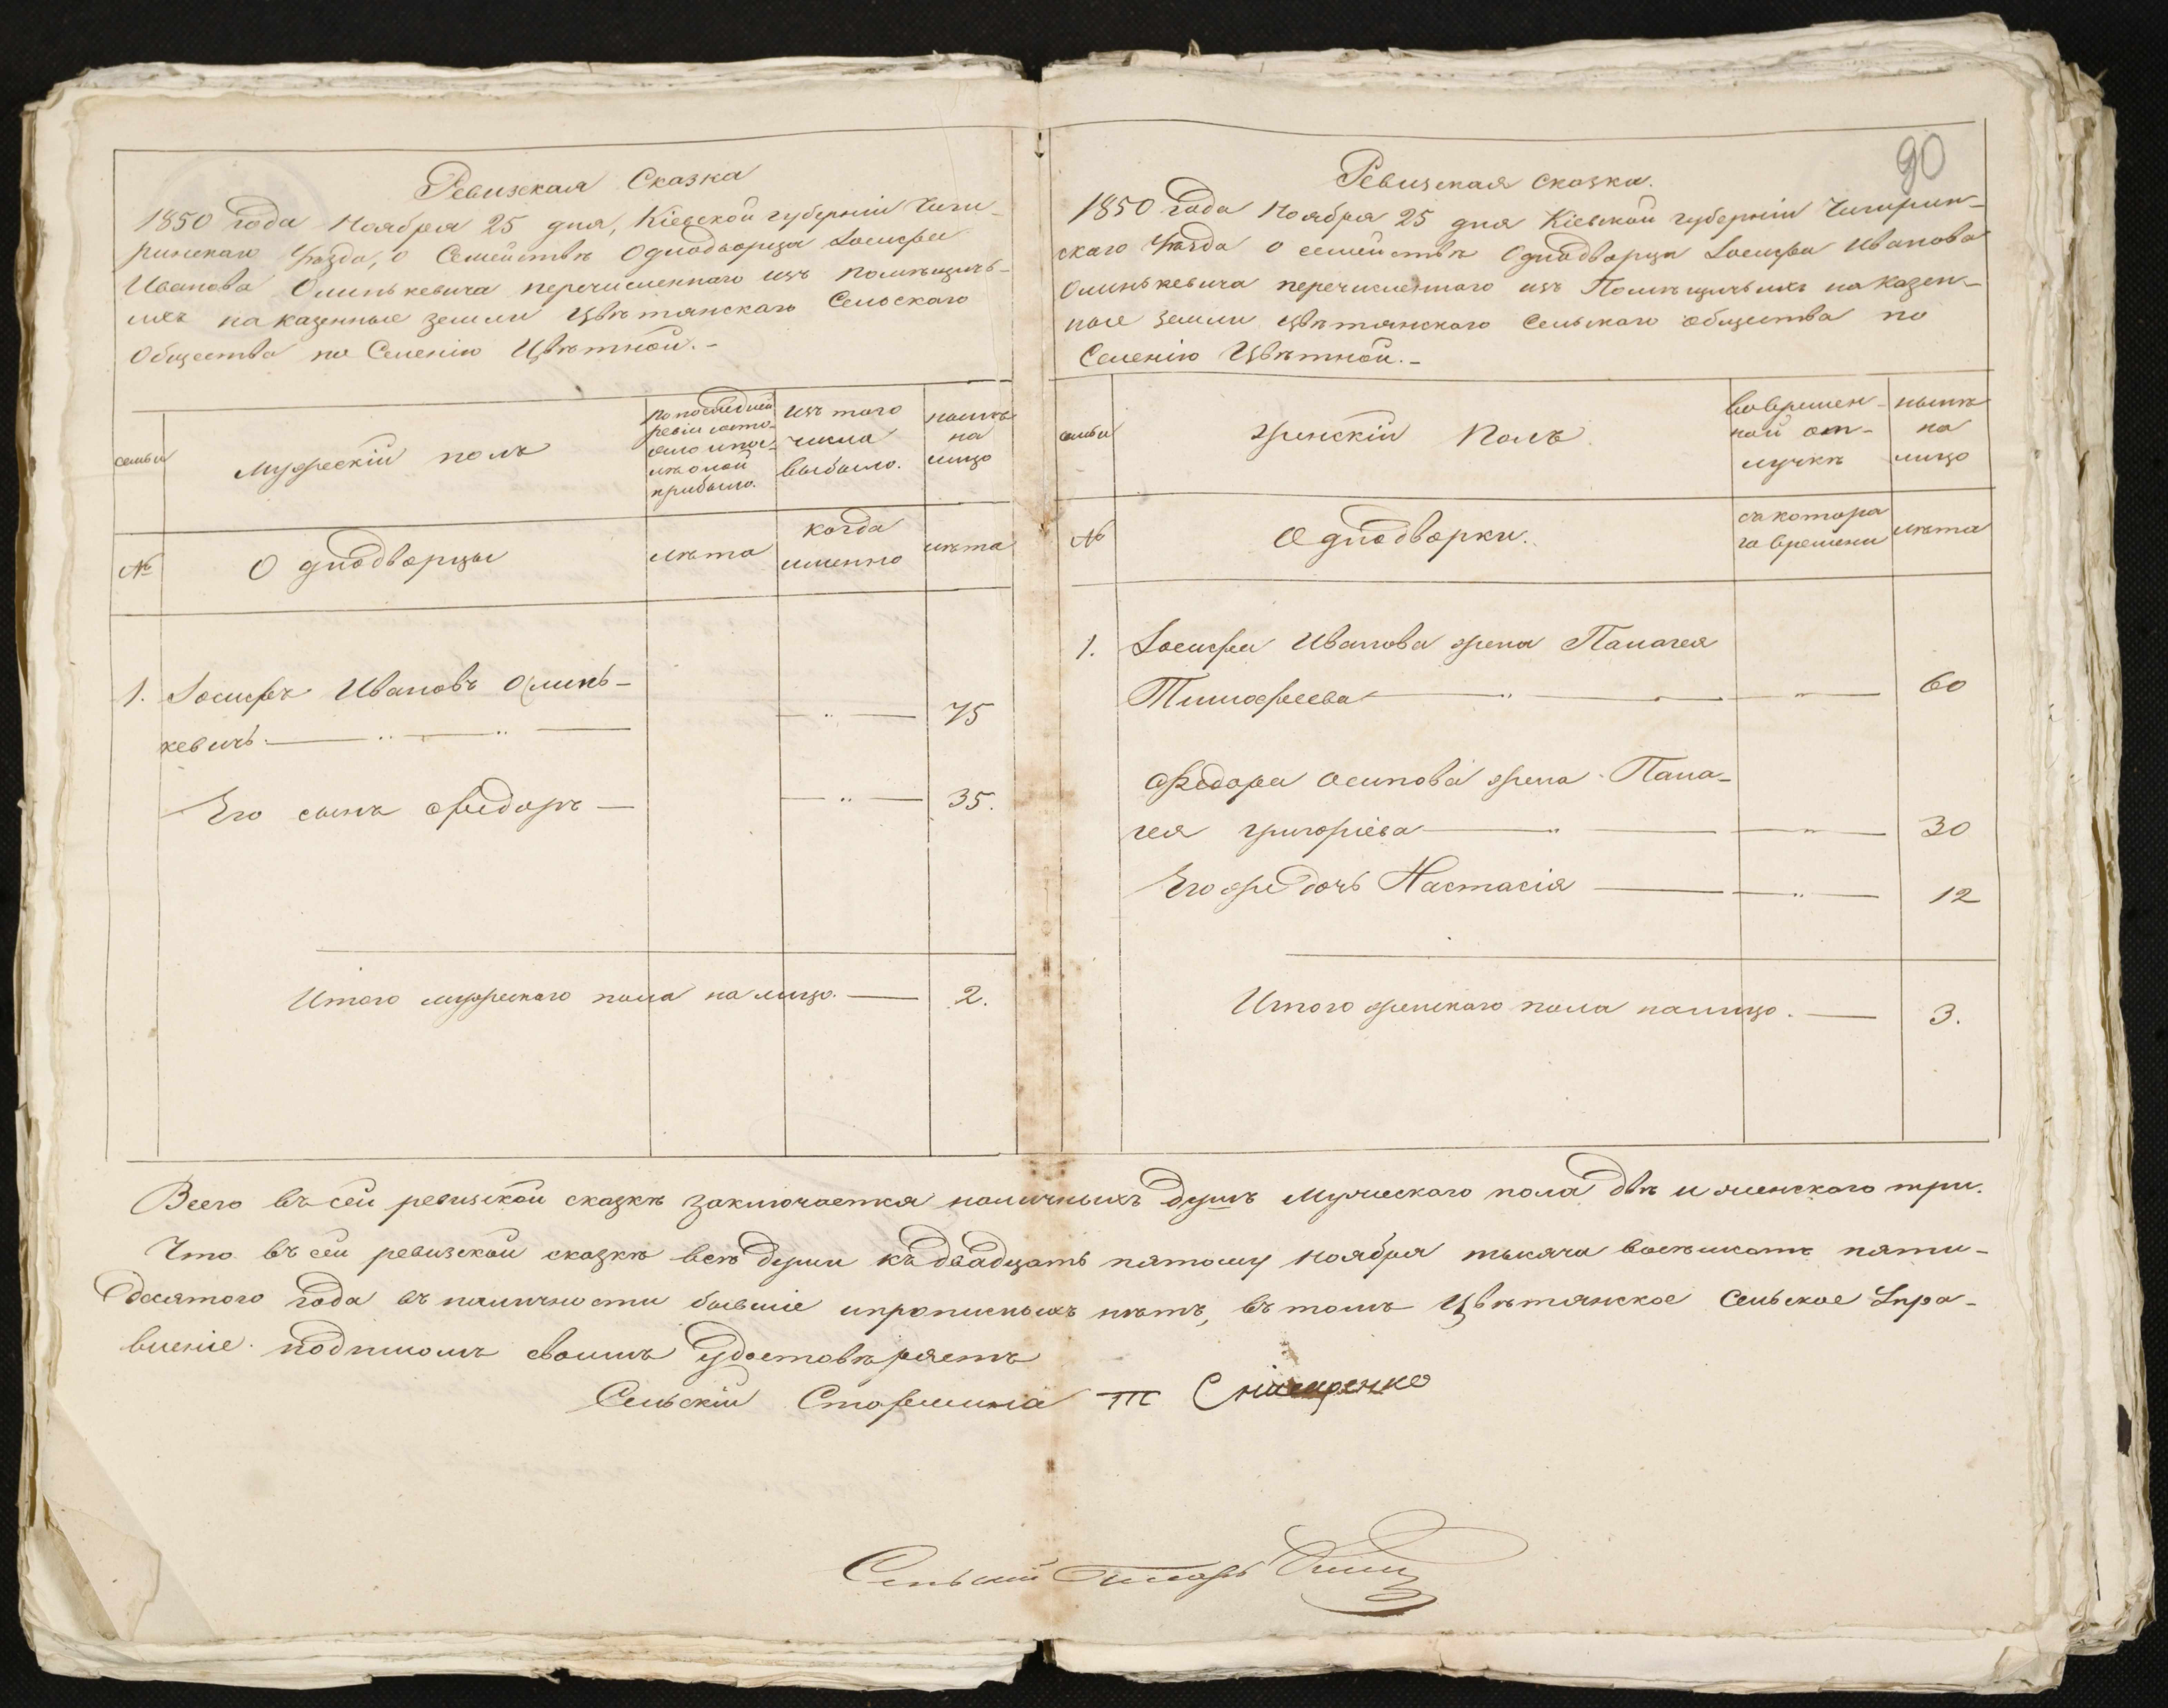 Ревизская Сказка
1850 года Ноября 25 дня, Кіевской губерніи Чиги-
ринскаго Уѣзда, о Семействѣ Однодворца Іосифа
Иванова Олинькевича перечисленнаго изъ помѣщичь-
ихъ на казенные земли Цвѣтянскаго Сельскаго
Общества по Селенію Цвѣтной.-
семьи
мужескій полъ
по последней
ревіи состо-
яло и пос-
лѣ оной
прибыло.
изъ того
числа
выбыло.
нынѣ
на
лицо
№
Однодворцы
лѣта
когда
именно
лѣта
1. Іосифъ Ивановъ Олинь-
кевичь. 75
Его сынъ Федоръ — 35.
Итого мужескаго пола на лицо. — 2.
90
Ревизская сказка.
1850 года Ноября 25 дня Кіевской губерніи Чигирин-
скаго Уѣзда о семействѣ Однодворца Іосифа Иванова
Олинькевича перечисленнаго изъ Помѣщичьихъ на казен-
ные земли Цвѣтянскаго Сельскаго общества по
Селенію Цвѣтной.-
семьи
женскій Полъ
во времен-
ной от-
лучкѣ
нынѣ
на
лицо
№
Однодворки.
съ котора
го времени
лѣта
1. Іосифа Иванова жена Палагея
Тимофеева 60
Федора Осипова жена Пала-
гея Григоріева 30
Его же дочь Настасія 12
Итого женскаго пола налицо. — 3.
Всего въ сей ревизской сказкѣ заключается наличныхъ душъ мужескаго пола двѣ и женскаго три.
Что въ сей ревизской сказкѣ всѣ души къ двадцать пятому Ноября тысяча восемьсотъ пяти-
десятого года въ наличности бывшіе и прописныхъ нѣтъ, въ томъ Цвѣтянское Сельское Упра-
вленіе подписомъ своимъ удостовѣряетъ
Сельскій Старшина
Сельскій Писарь